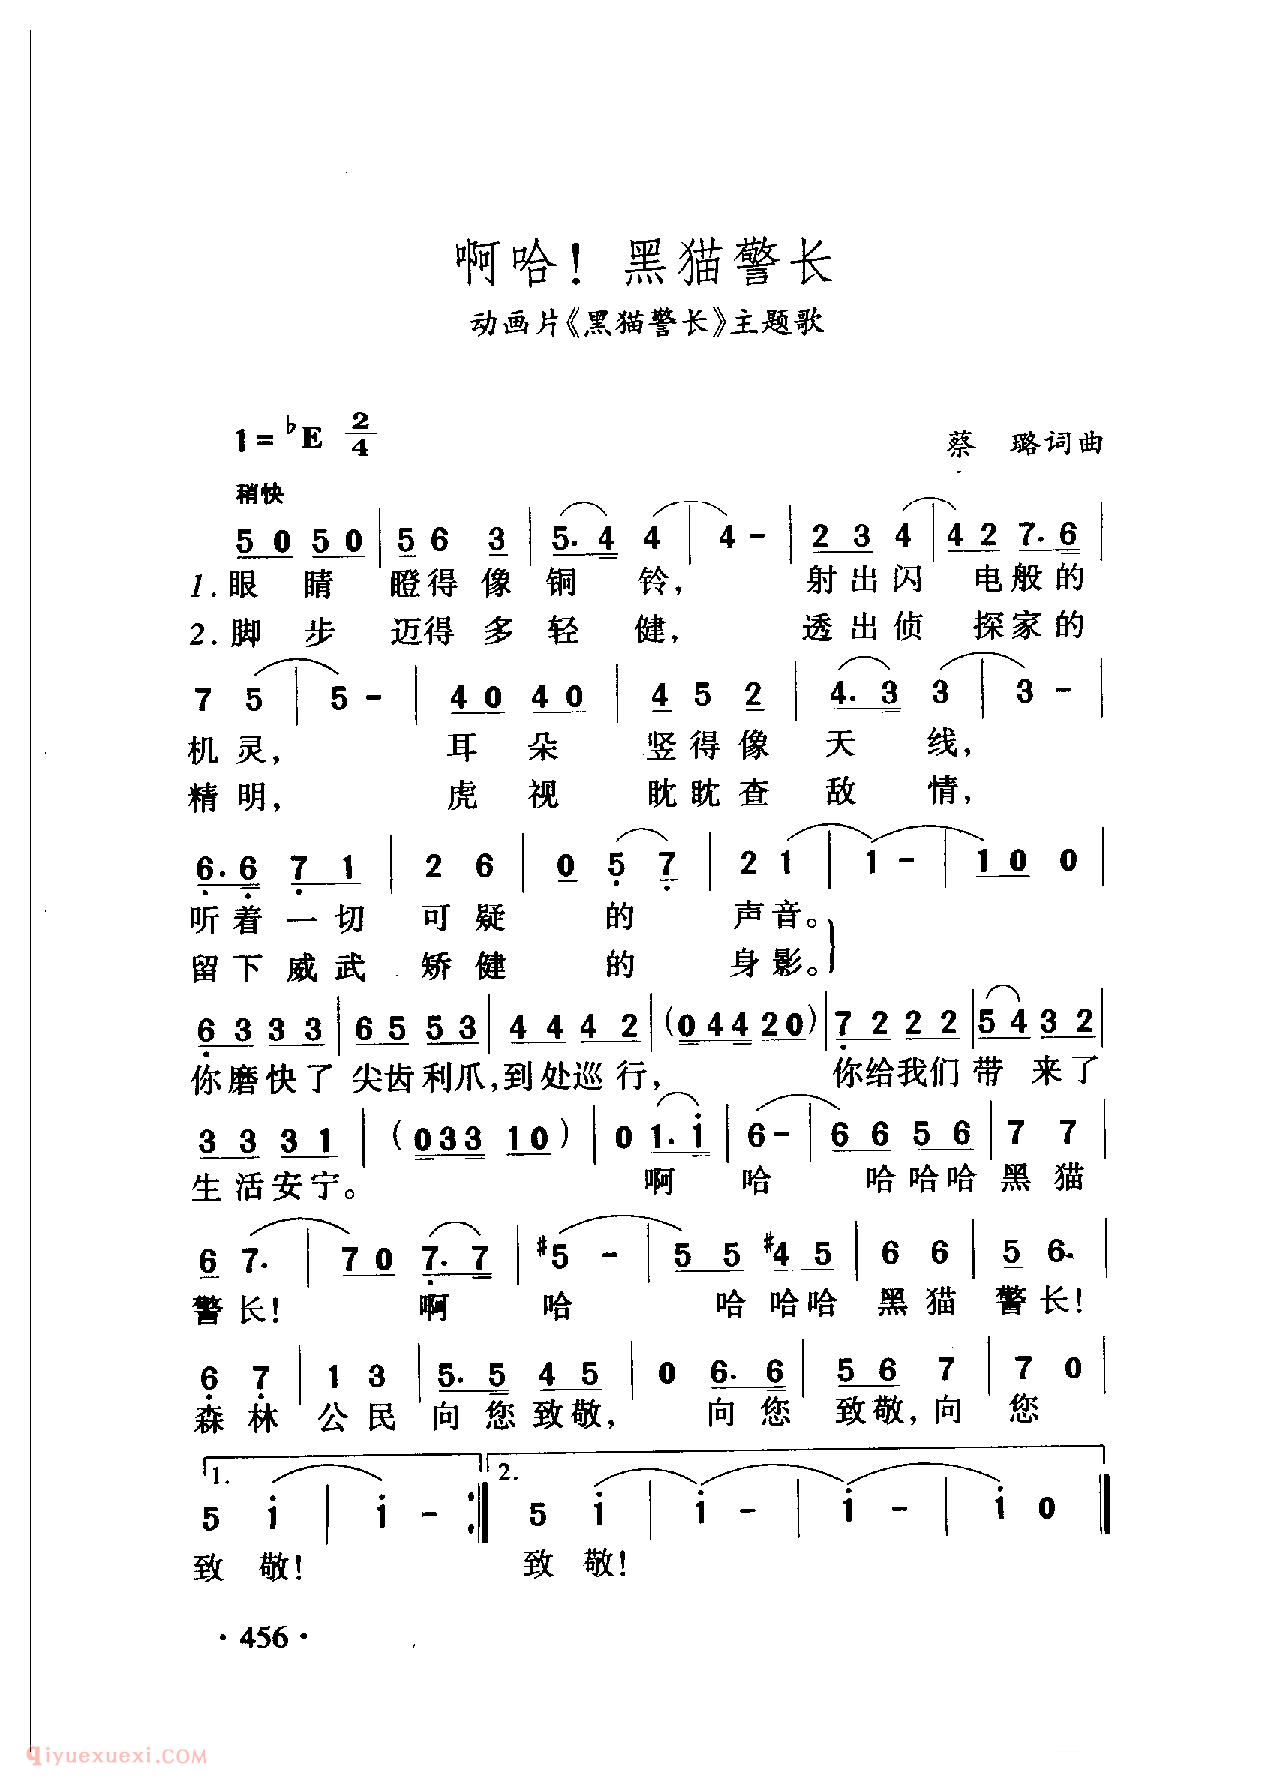 啊哈！黑猫警长
动画片《黑猫警长》主题歌
1=♭E 2/4
蔡 璐词曲
稍快
5 0 5 0 | 5 6 3 | 5. 4 4 | 4 - | 2 3 4 | 4 2 7. 6 |
1.眼 睛 瞪得像铜 铃， 射出闪 电般的
2.脚 步 迈得多轻 健， 透出侦 探家的
7 5 | 5 - | 4 0 4 0 | 4 5 2 | 4. 3 3 | 3 - |
机灵， 耳 朵 竖得像 天 线，
精明， 虎 视 眈眈查 敌 情，
6. 6 7 1 | 2 6 | 0 5 7 | 2 1 | 1 - | 1 0 0 |
听着一切 可疑 的 声音。
留下威武 矫健 的 身影。
6 3 3 3 | 6 5 5 3 | 4 4 4 2 | (0 4 4 2 0) | 7 2 2 2 | 5 4 3 2 |
你磨快了 尖齿利爪，到处巡行， 你给我们 带 来了
3 3 3 1 | (0 3 3 1 0) | 0 1. i | 6 - | 6 6 5 6 | 7 7 |
生活安宁。 啊 哈 哈哈哈黑猫
6 7. | 7 0 7. 7 | #5 - | 5 5 #4 5 | 6 6 | 5 6. |
警长！ 啊 哈 哈 哈哈 黑猫 警长！
6 7 | 1 3 | 5. 5 4 5 | 0 6. 6 | 5 6 7 | 7 0 |
森林 公民 向您致敬， 向您 致敬，向 您
1. 2.
5 i | i - :| 5 i | i - | i - | i 0 |
致 敬！ 致 敬！
·456·
qiyuexuexi.COM